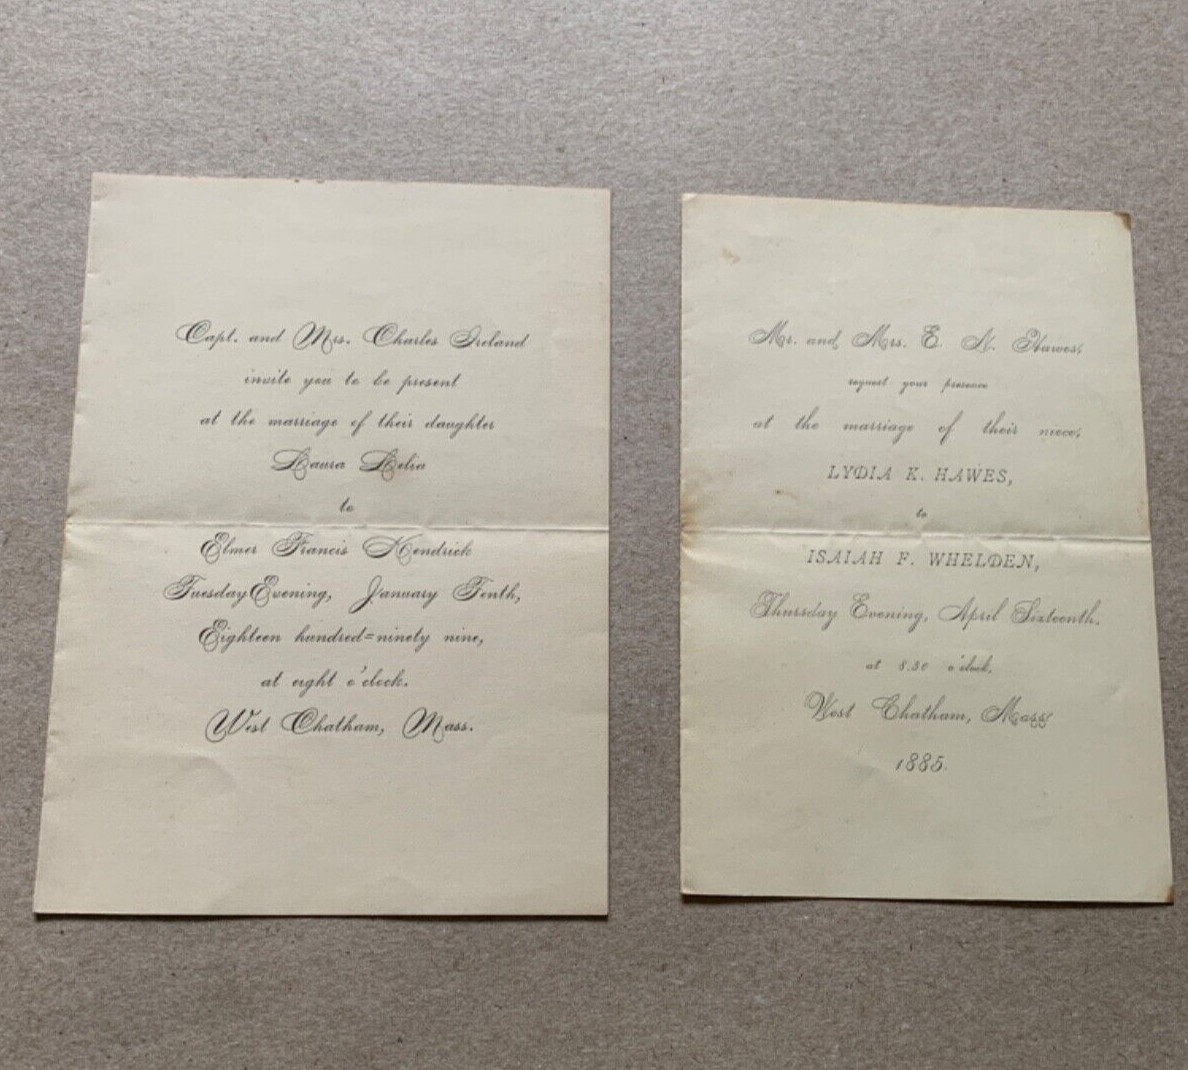 Capt. and Mrs. Charles Ireland
invite you to be present
at the marriage of their daughter
Laura Lelia
to
Elmer Francis Kendrick
Tuesday Evening, January Tenth,
Eighteen hundred=ninety nine,
at eight o'clock.
West Chatham, Mass.
Mr. and Mrs. E. N. Hawes,
request your presence
at the marriage of their niece,
LYDIA K. HAWES,
to
ISAIAH F. WHELDEN,
Thursday Evening, April Sixteenth.
at 8.30 o'clock.
West Chatham, Mass
1885.